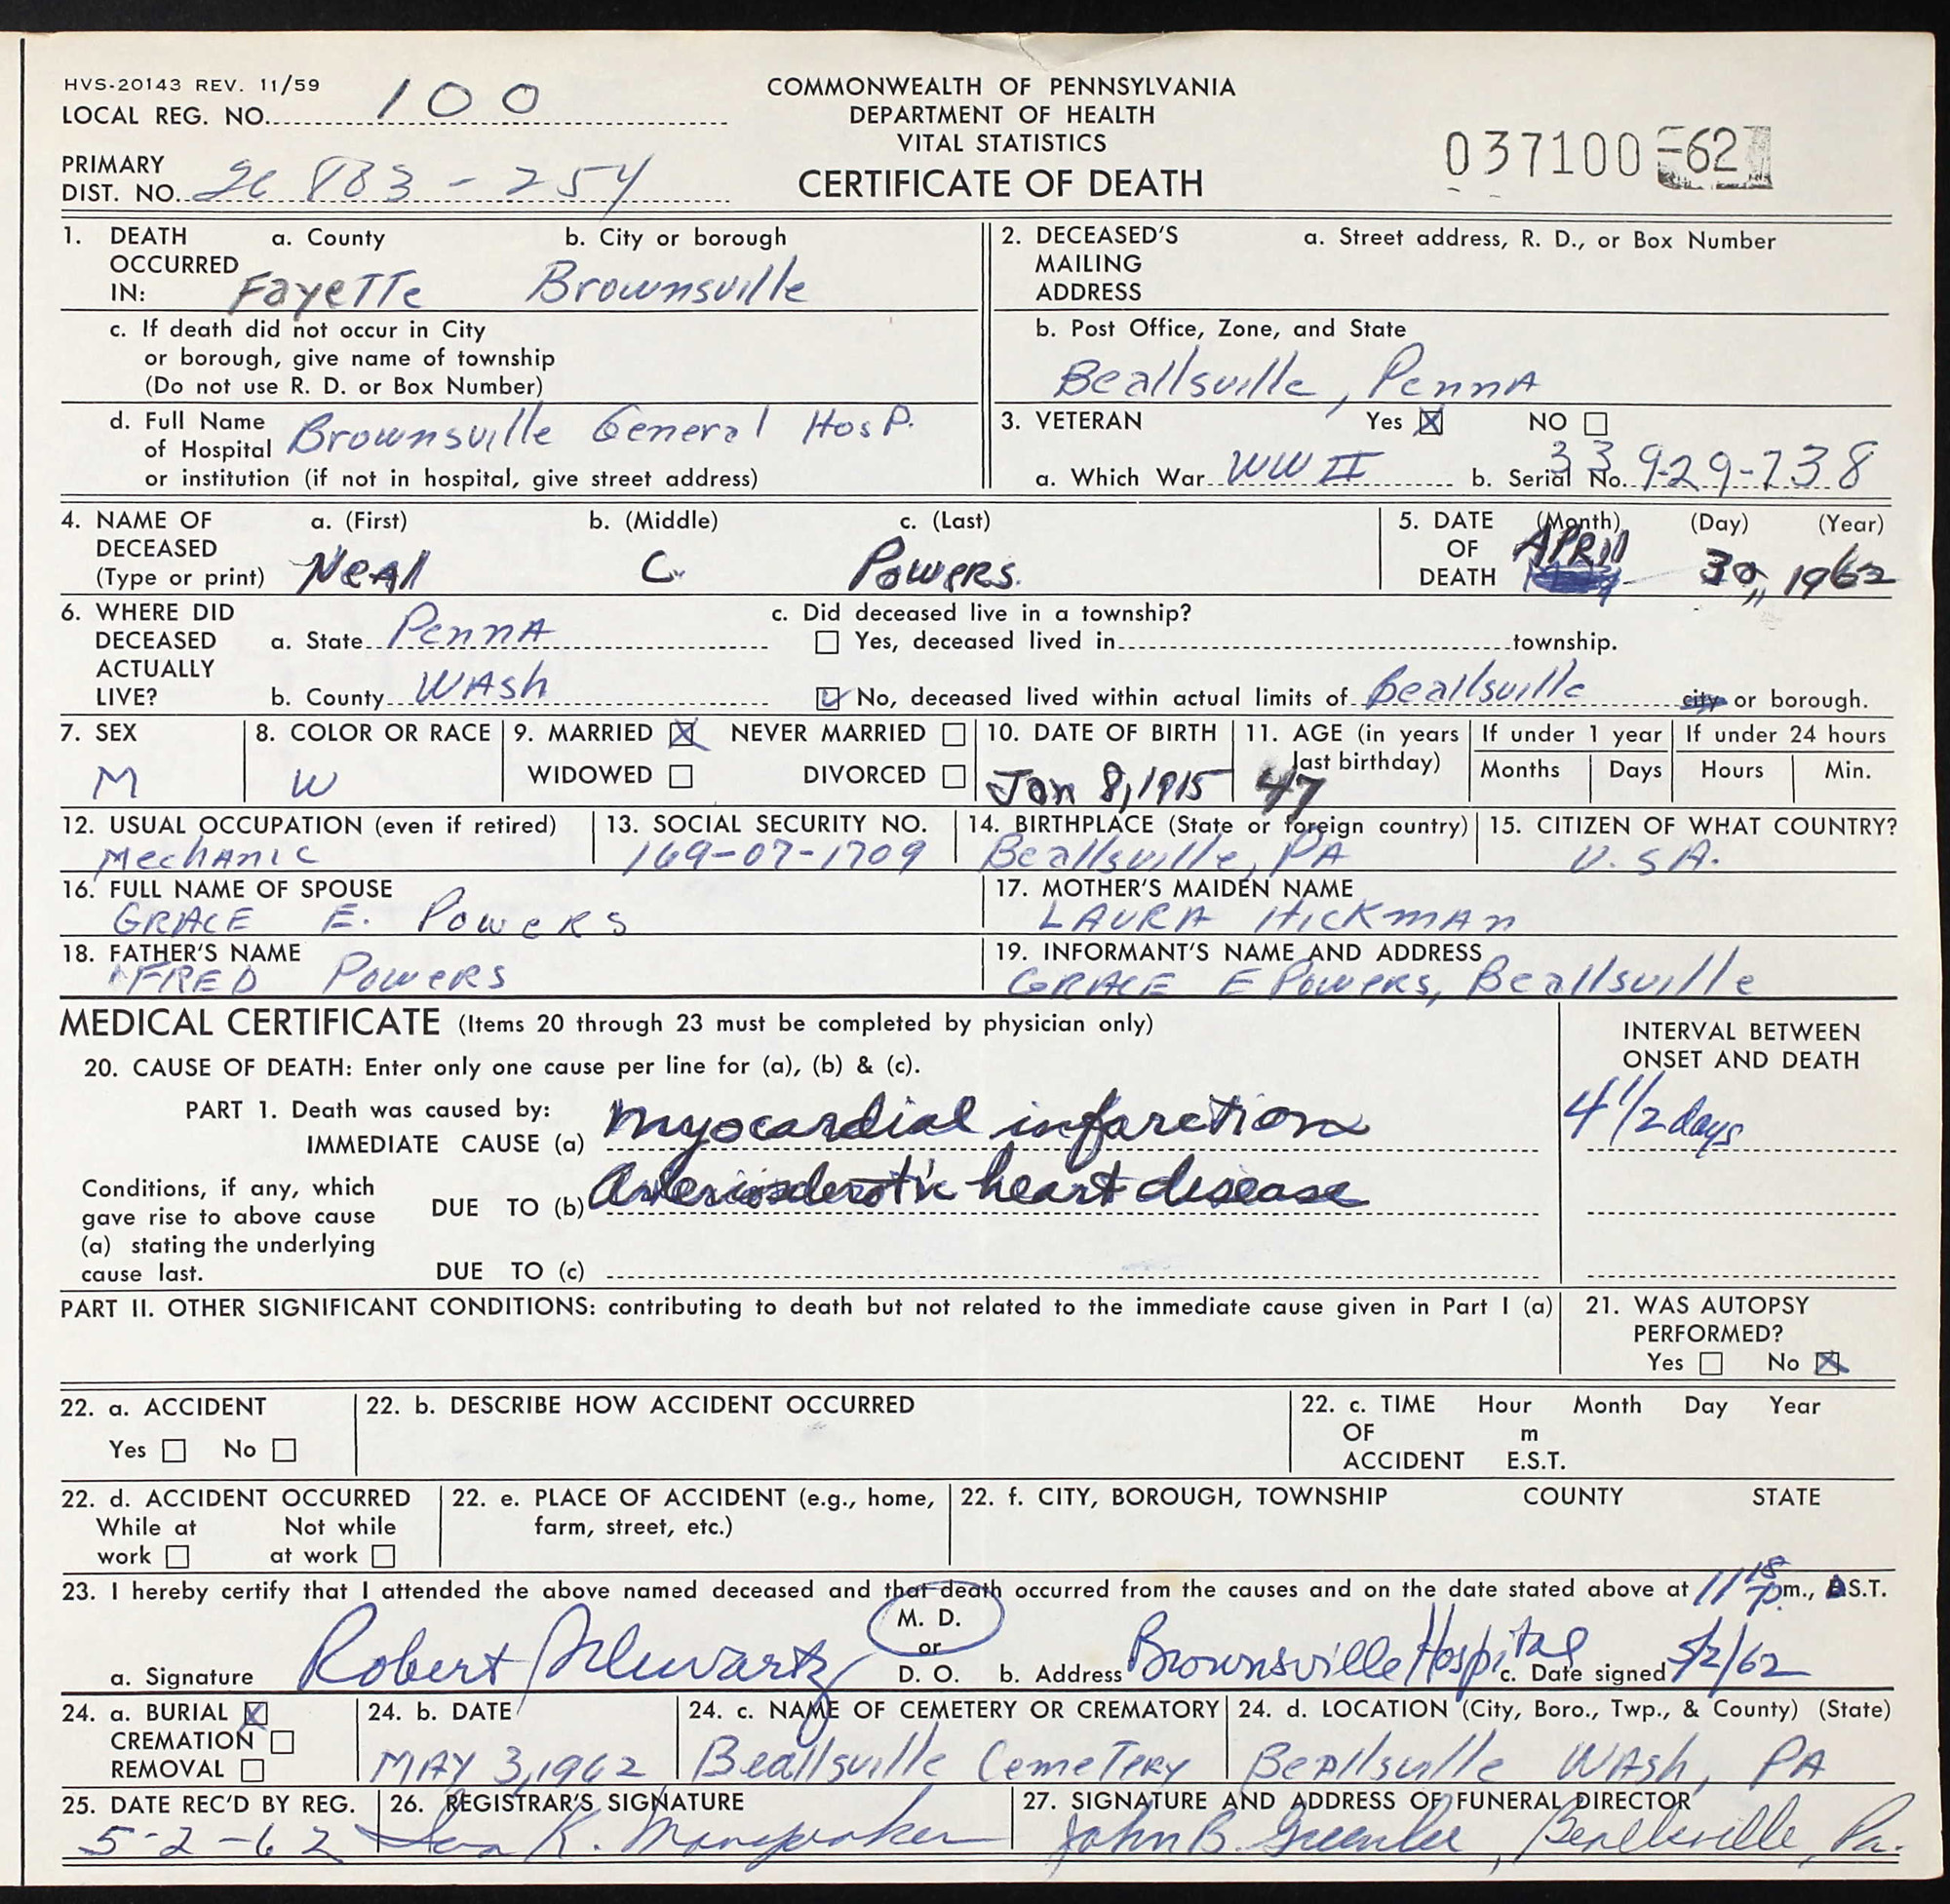 HVS-20143 REV. 11/59
LOCAL REG. NO. 100
PRIMARY
DIST. NO. 883-254
COMMONWEALTH OF PENNSYLVANIA
DEPARTMENT OF HEALTH
VITAL STATISTICS
CERTIFICATE OF DEATH
037100-62
1. DEATH OCCURRED IN: a. County b. City or borough
Fayette Brownsville
c. If death did not occur in City
or borough, give name of township
(Do not use R. D. or Box Number)
d. Full Name Brownsville General Hosp.
of Hospital
or institution (if not in hospital, give street address)
2. DECEASED'S MAILING ADDRESS a. Street address, R. D., or Box Number
b. Post Office, Zone, and State
Beallsville, Penna
3. VETERAN Yes ☒ NO ☐
a. Which War WW II b. Serial No. 33 929-738
4. NAME OF DECEASED (Type or print) a. (First) b. (Middle) c. (Last)
Neal C. Powers.
5. DATE OF DEATH (Month) (Day) (Year)
April 30, 1962
6. WHERE DID DECEASED ACTUALLY LIVE?
a. State Penna
b. County Wash
c. Did deceased live in a township?
☐ Yes, deceased lived in township.
☑ No, deceased lived within actual limits of Beallsville city or borough.
7. SEX
M
8. COLOR OR RACE
W
9. MARRIED ☒ NEVER MARRIED ☐
WIDOWED ☐ DIVORCED ☐
10. DATE OF BIRTH
Jan 8, 1915
11. AGE (in years last birthday)
47
If under 1 year
Months Days
If under 24 hours
Hours Min.
12. USUAL OCCUPATION (even if retired)
Mechanic
13. SOCIAL SECURITY NO.
169-07-1709
14. BIRTHPLACE (State or foreign country)
Beallsville, PA
15. CITIZEN OF WHAT COUNTRY?
U.S.A.
16. FULL NAME OF SPOUSE
Grace E. Powers
17. MOTHER'S MAIDEN NAME
Laura Hickman
18. FATHER'S NAME
Fred Powers
19. INFORMANT'S NAME AND ADDRESS
Grace E Powers, Beallsville
MEDICAL CERTIFICATE (Items 20 through 23 must be completed by physician only)
INTERVAL BETWEEN
ONSET AND DEATH
20. CAUSE OF DEATH: Enter only one cause per line for (a), (b) & (c).
PART 1. Death was caused by:
IMMEDIATE CAUSE (a) Myocardial infarction 4 1/2 days
Conditions, if any, which
gave rise to above cause
(a) stating the underlying
cause last.
DUE TO (b) Arteriosclerotic heart disease
DUE TO (c)
PART II. OTHER SIGNIFICANT CONDITIONS: contributing to death but not related to the immediate cause given in Part I (a)
21. WAS AUTOPSY
PERFORMED?
Yes ☐ No ☒
22. a. ACCIDENT
Yes ☐ No ☐
22. b. DESCRIBE HOW ACCIDENT OCCURRED
22. c. TIME OF ACCIDENT Hour Month Day Year
m
E.S.T.
22. d. ACCIDENT OCCURRED
While at work ☐ Not while at work ☐
22. e. PLACE OF ACCIDENT (e.g., home,
farm, street, etc.)
22. f. CITY, BOROUGH, TOWNSHIP COUNTY STATE
23. I hereby certify that I attended the above named deceased and that death occurred from the causes and on the date stated above at 11 18 p.m., D.S.T.
a. Signature Robert Schwartz M. D. or D. O. b. Address Brownsville Hospital c. Date signed 5/2/62
24. a. BURIAL ☒
CREMATION ☐
REMOVAL ☐
24. b. DATE
May 3, 1962
24. c. NAME OF CEMETERY OR CREMATORY
Beallsville Cemetery
24. d. LOCATION (City, Boro., Twp., & County) (State)
Beallsville Wash, PA
25. DATE REC'D BY REG.
5-2-62
26. REGISTRAR'S SIGNATURE
K.
27. SIGNATURE AND ADDRESS OF FUNERAL DIRECTOR
John B. Greenlee, Beallsville, Pa.